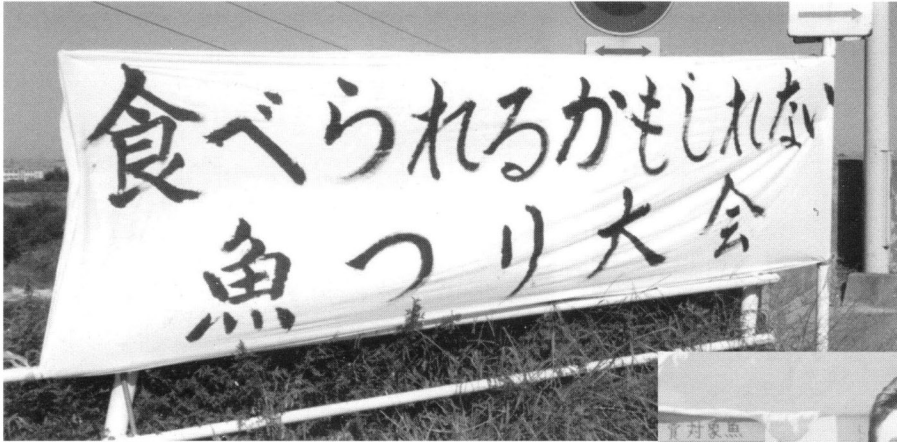 食べられるかもしれない
魚つり大会
対象魚